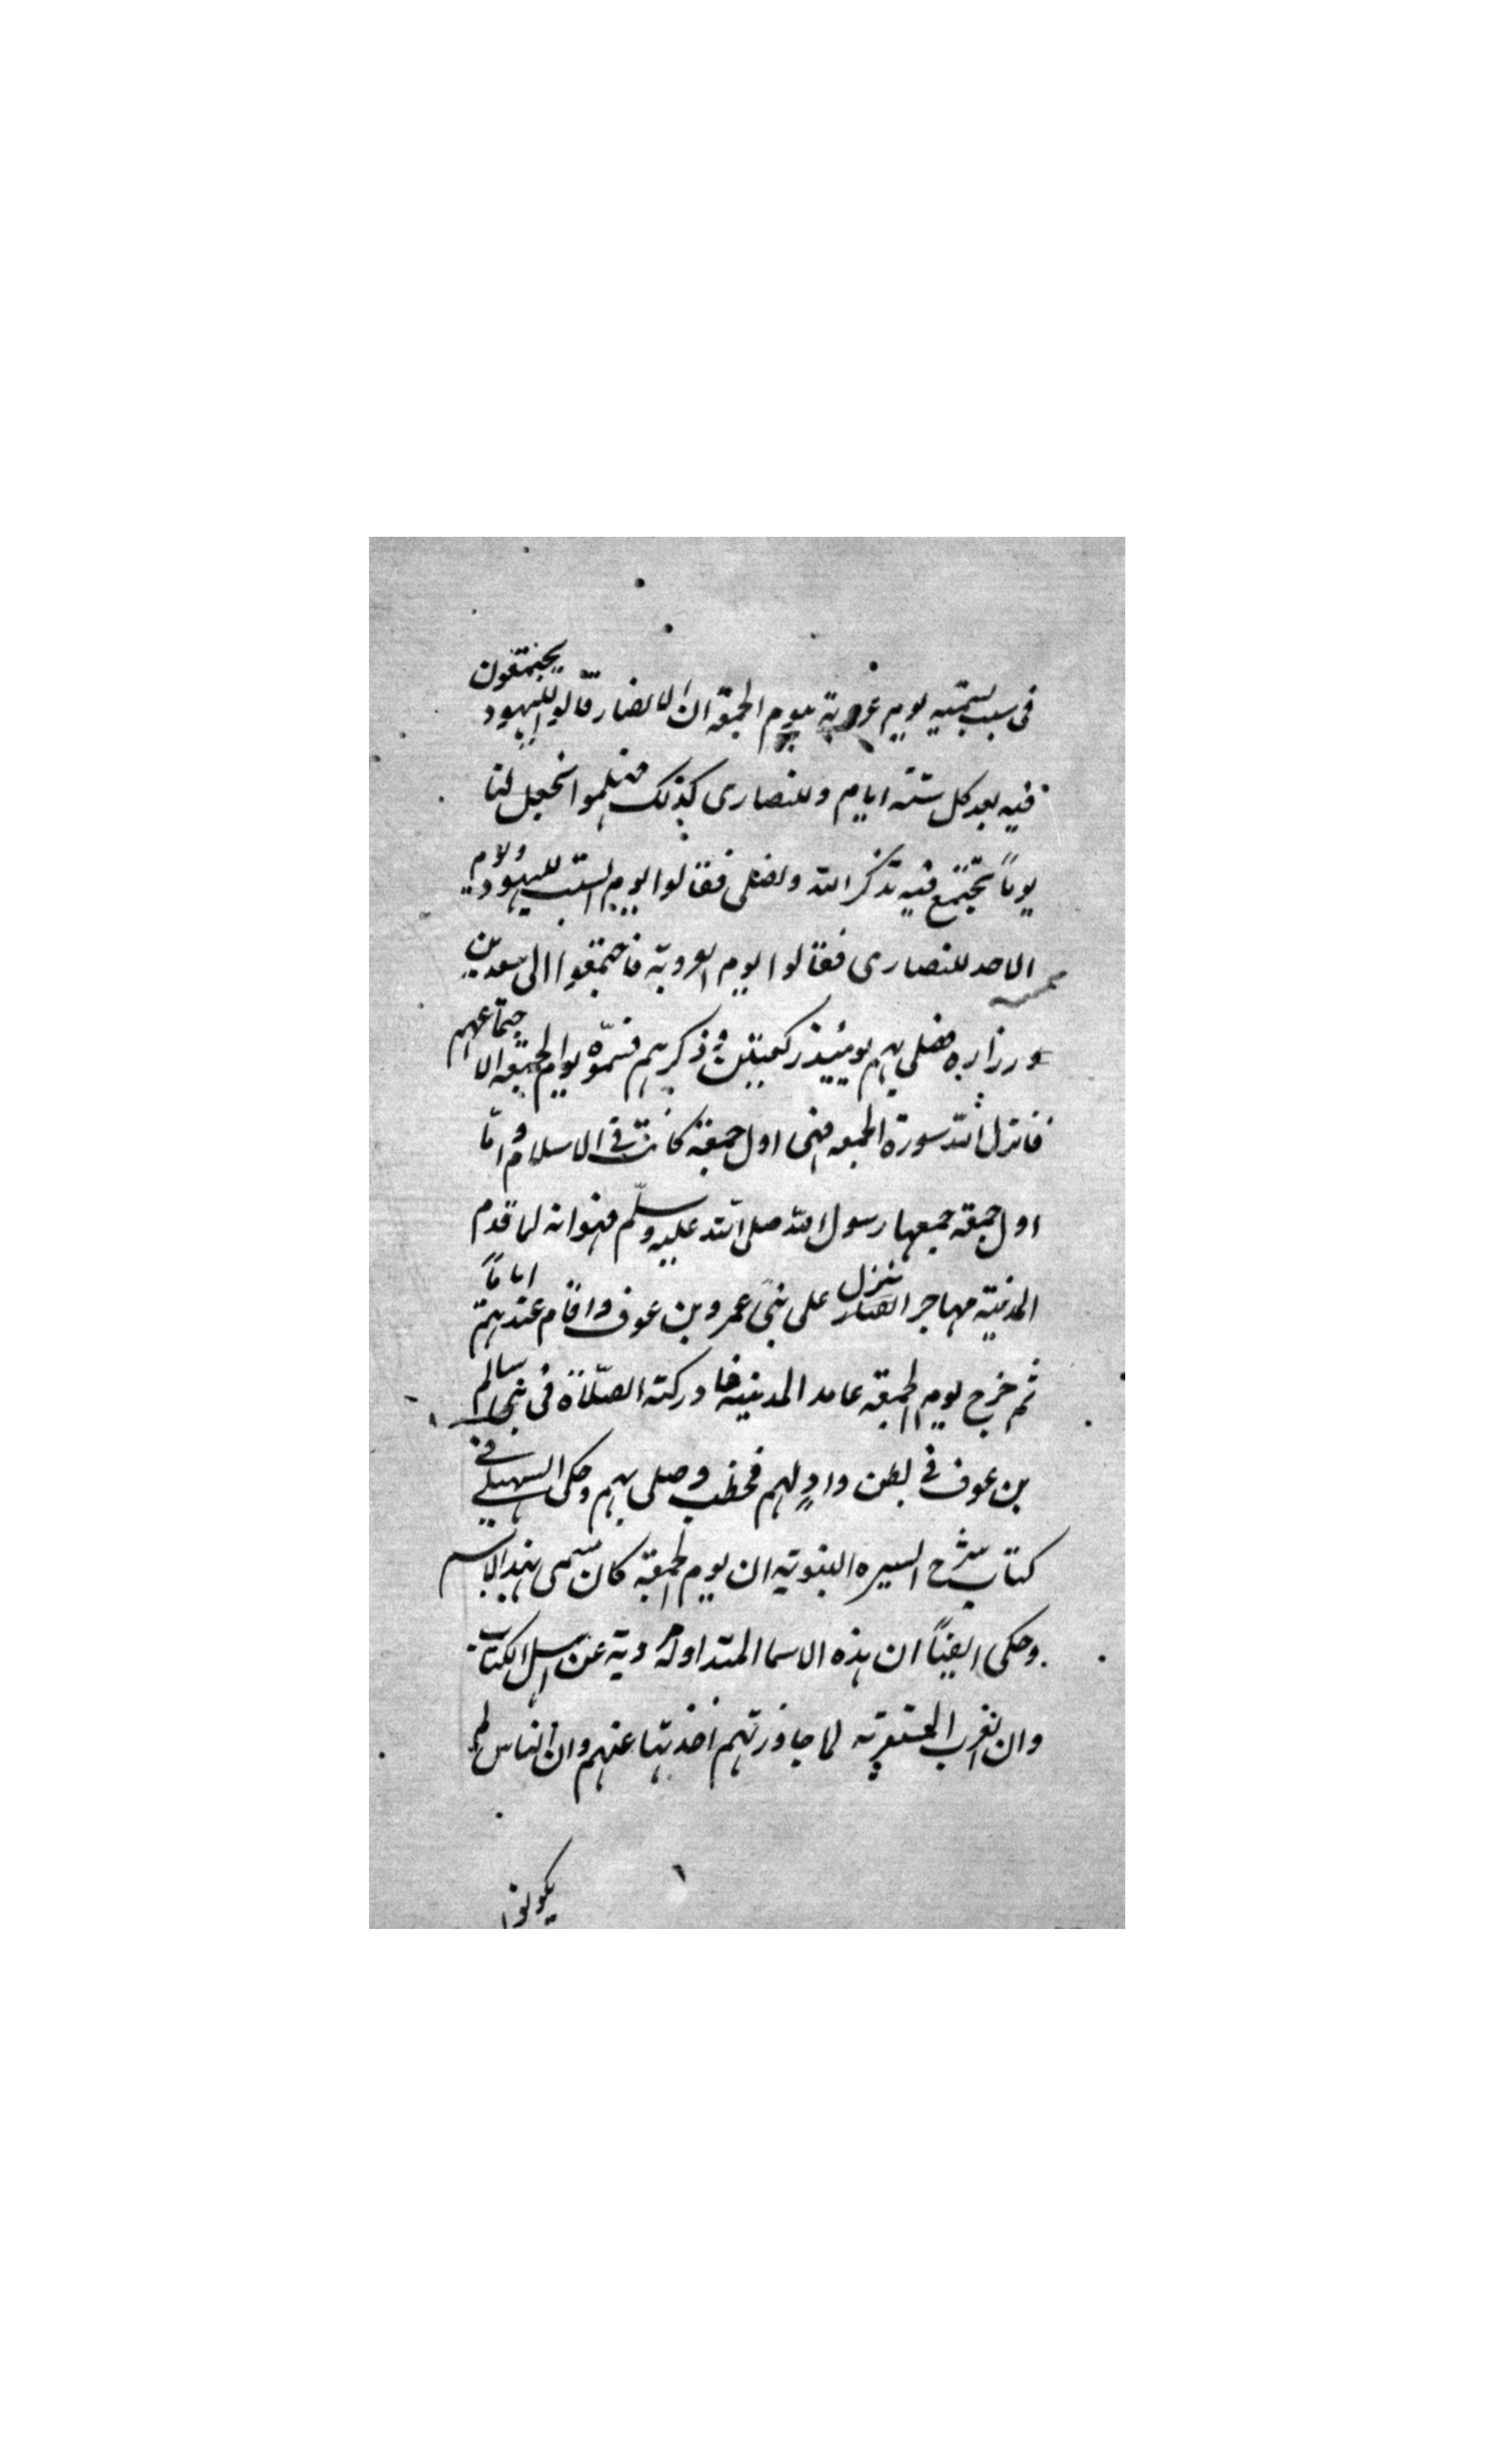 فى سبب تسميه يوم عروبة بيوم الجمعة ان الانصار قالوا لليهود يوم يجتمعون
فيه بعد كل ستة ايام وللنصارى كذلك فهلموا نجعل لنا
يوماً نجتمع فيه نذكر الله ونصلى فقالوا يوم السبت لليهود ويوم
الاحد للنصارى فقالوا يوم العروبة فاجتمعوا الى سعد بن
زراره فصلى بهم يومئيذ ركعتين و ذكرهم فسمّوه يوم الجمعه لاجتماعهم
فانزل الله سورة الجمعه فهى اول جمعة كانت فى الاسلام و امّا
اول جمعة جمعها رسول الله صلى الله عليه وسلّم فهو انه لما قدم
المدينة مهاجر ا نزل على بنى عمرو بن عوف واقام عندهم اياماً
ثم خرج يوم الجمعة عامد المدينه فادركته الصّلاة فى بنى سالم
بن عوف فى بطن وادٍ لهم فخطب وصلى بهم وحكى السهيلى فى
كتاب شرح السيره النبوية ان يوم الجمعة كان يسمى بهذا الاسم
وحكى ايضاً ان هذه الاسما المتداولة مروية عن اهل الكتاب
وان العرب المستعربة لما جاورتهم اخذتها عنهم وان الناس لم
يكونوا